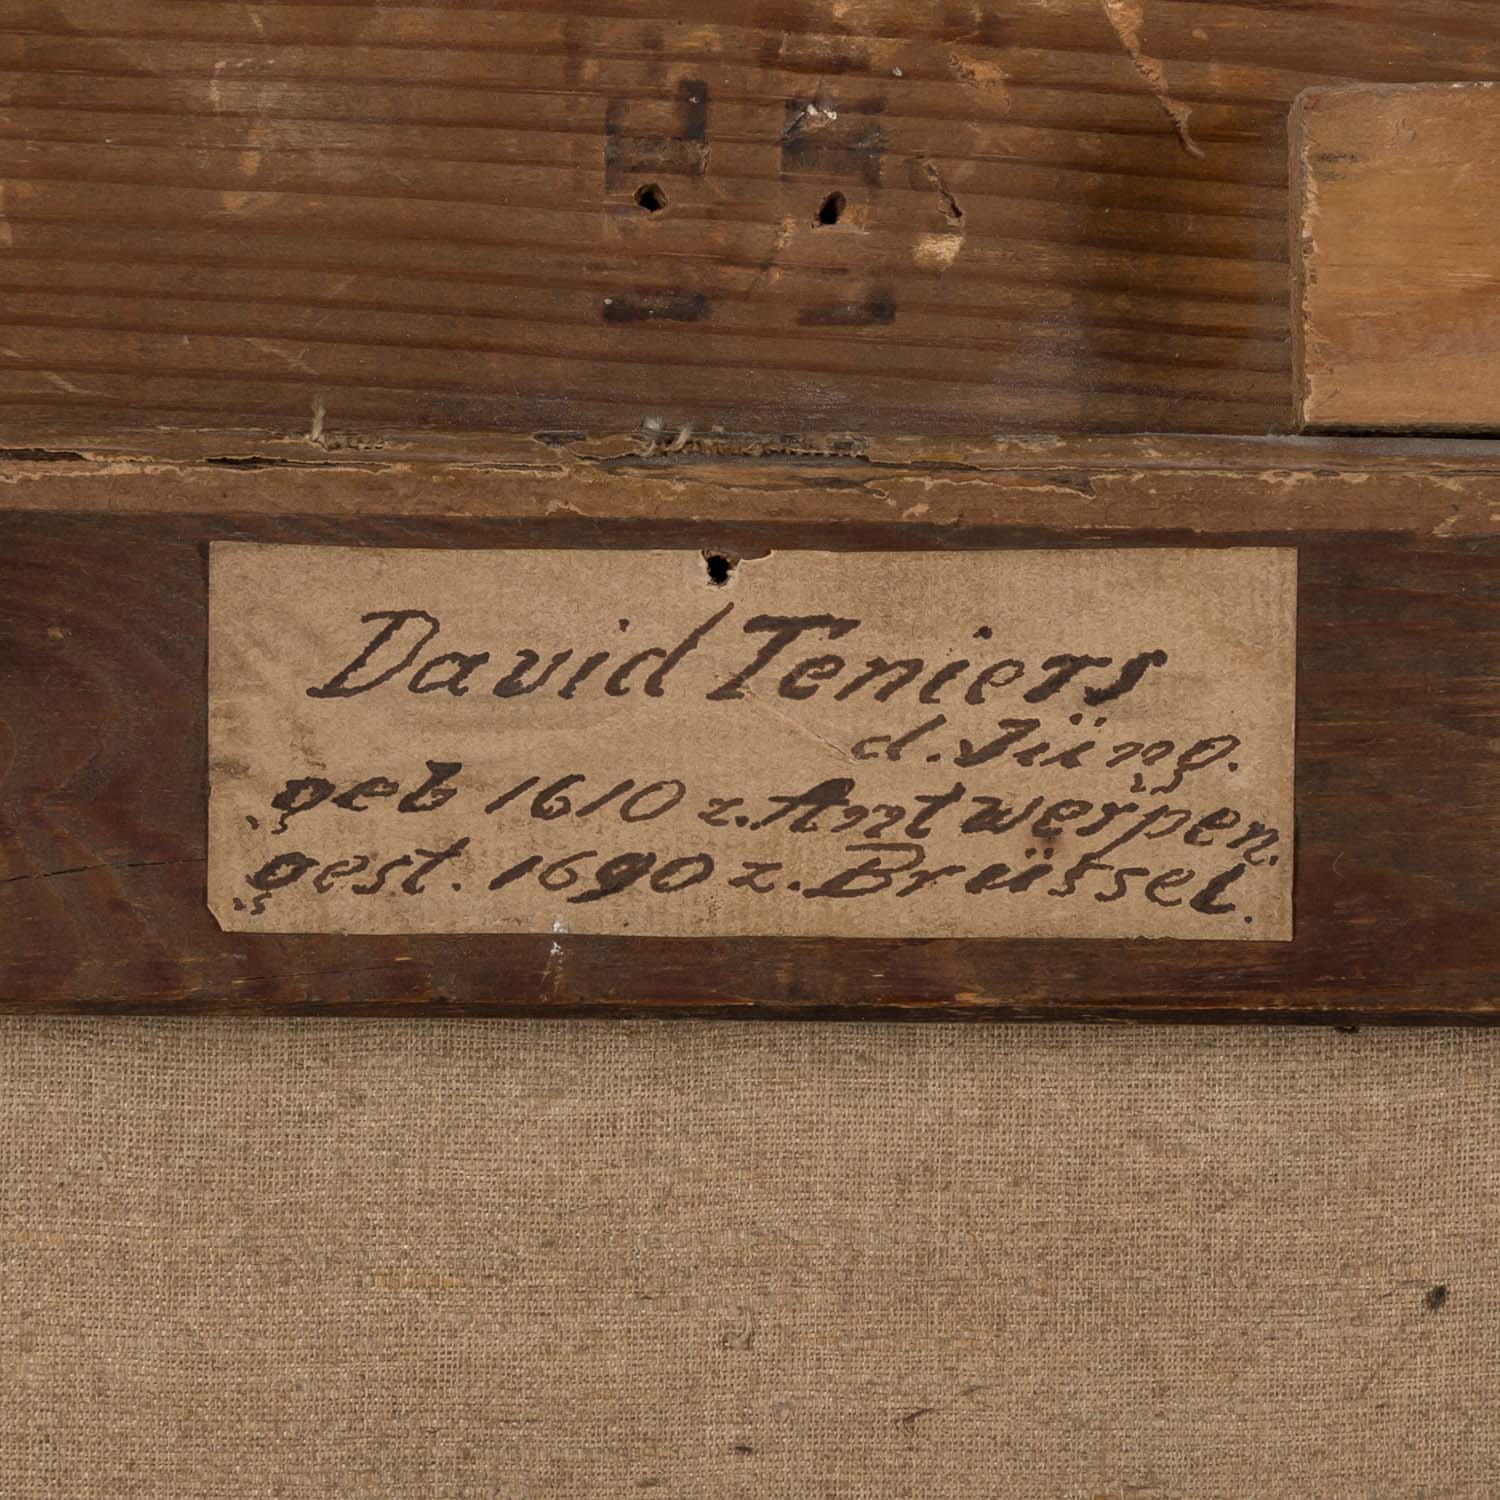 David Teniers
d. Jüng.
geb 1610 z. Antwerpen.
gest. 1690 z. Brüssel.